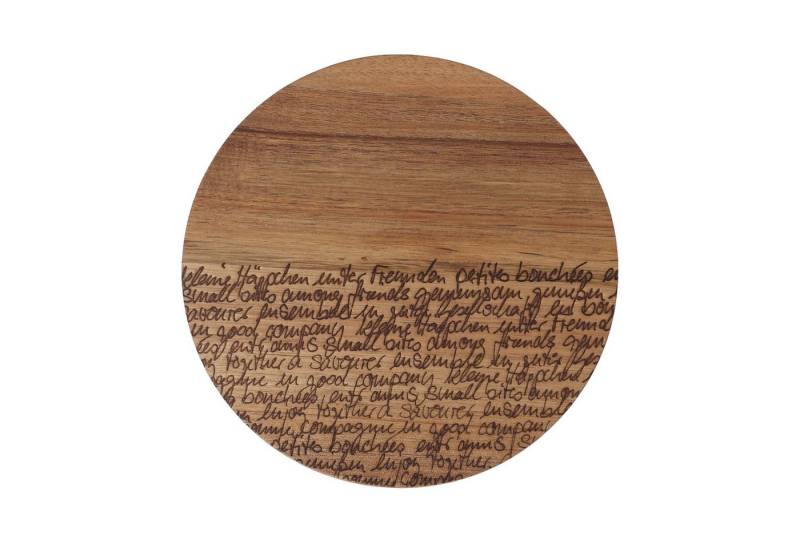 kleine Häppchen unter Freunden petites bouchées en
small bites among friends gemeinsam, genießen
savourer ensemble in guter Gesellschaft en bon
in good company kleine Häppchen unter Freund
entr amis small bites among friends gem
together à savourer ensemble in guter
pagnie in good company kleine Häppchen unter
bouchées, entr amis, small bites among
enjoy together à savourer, ensemble
compagnie in good company
petites bouchées entr amis, s
enjoy together.